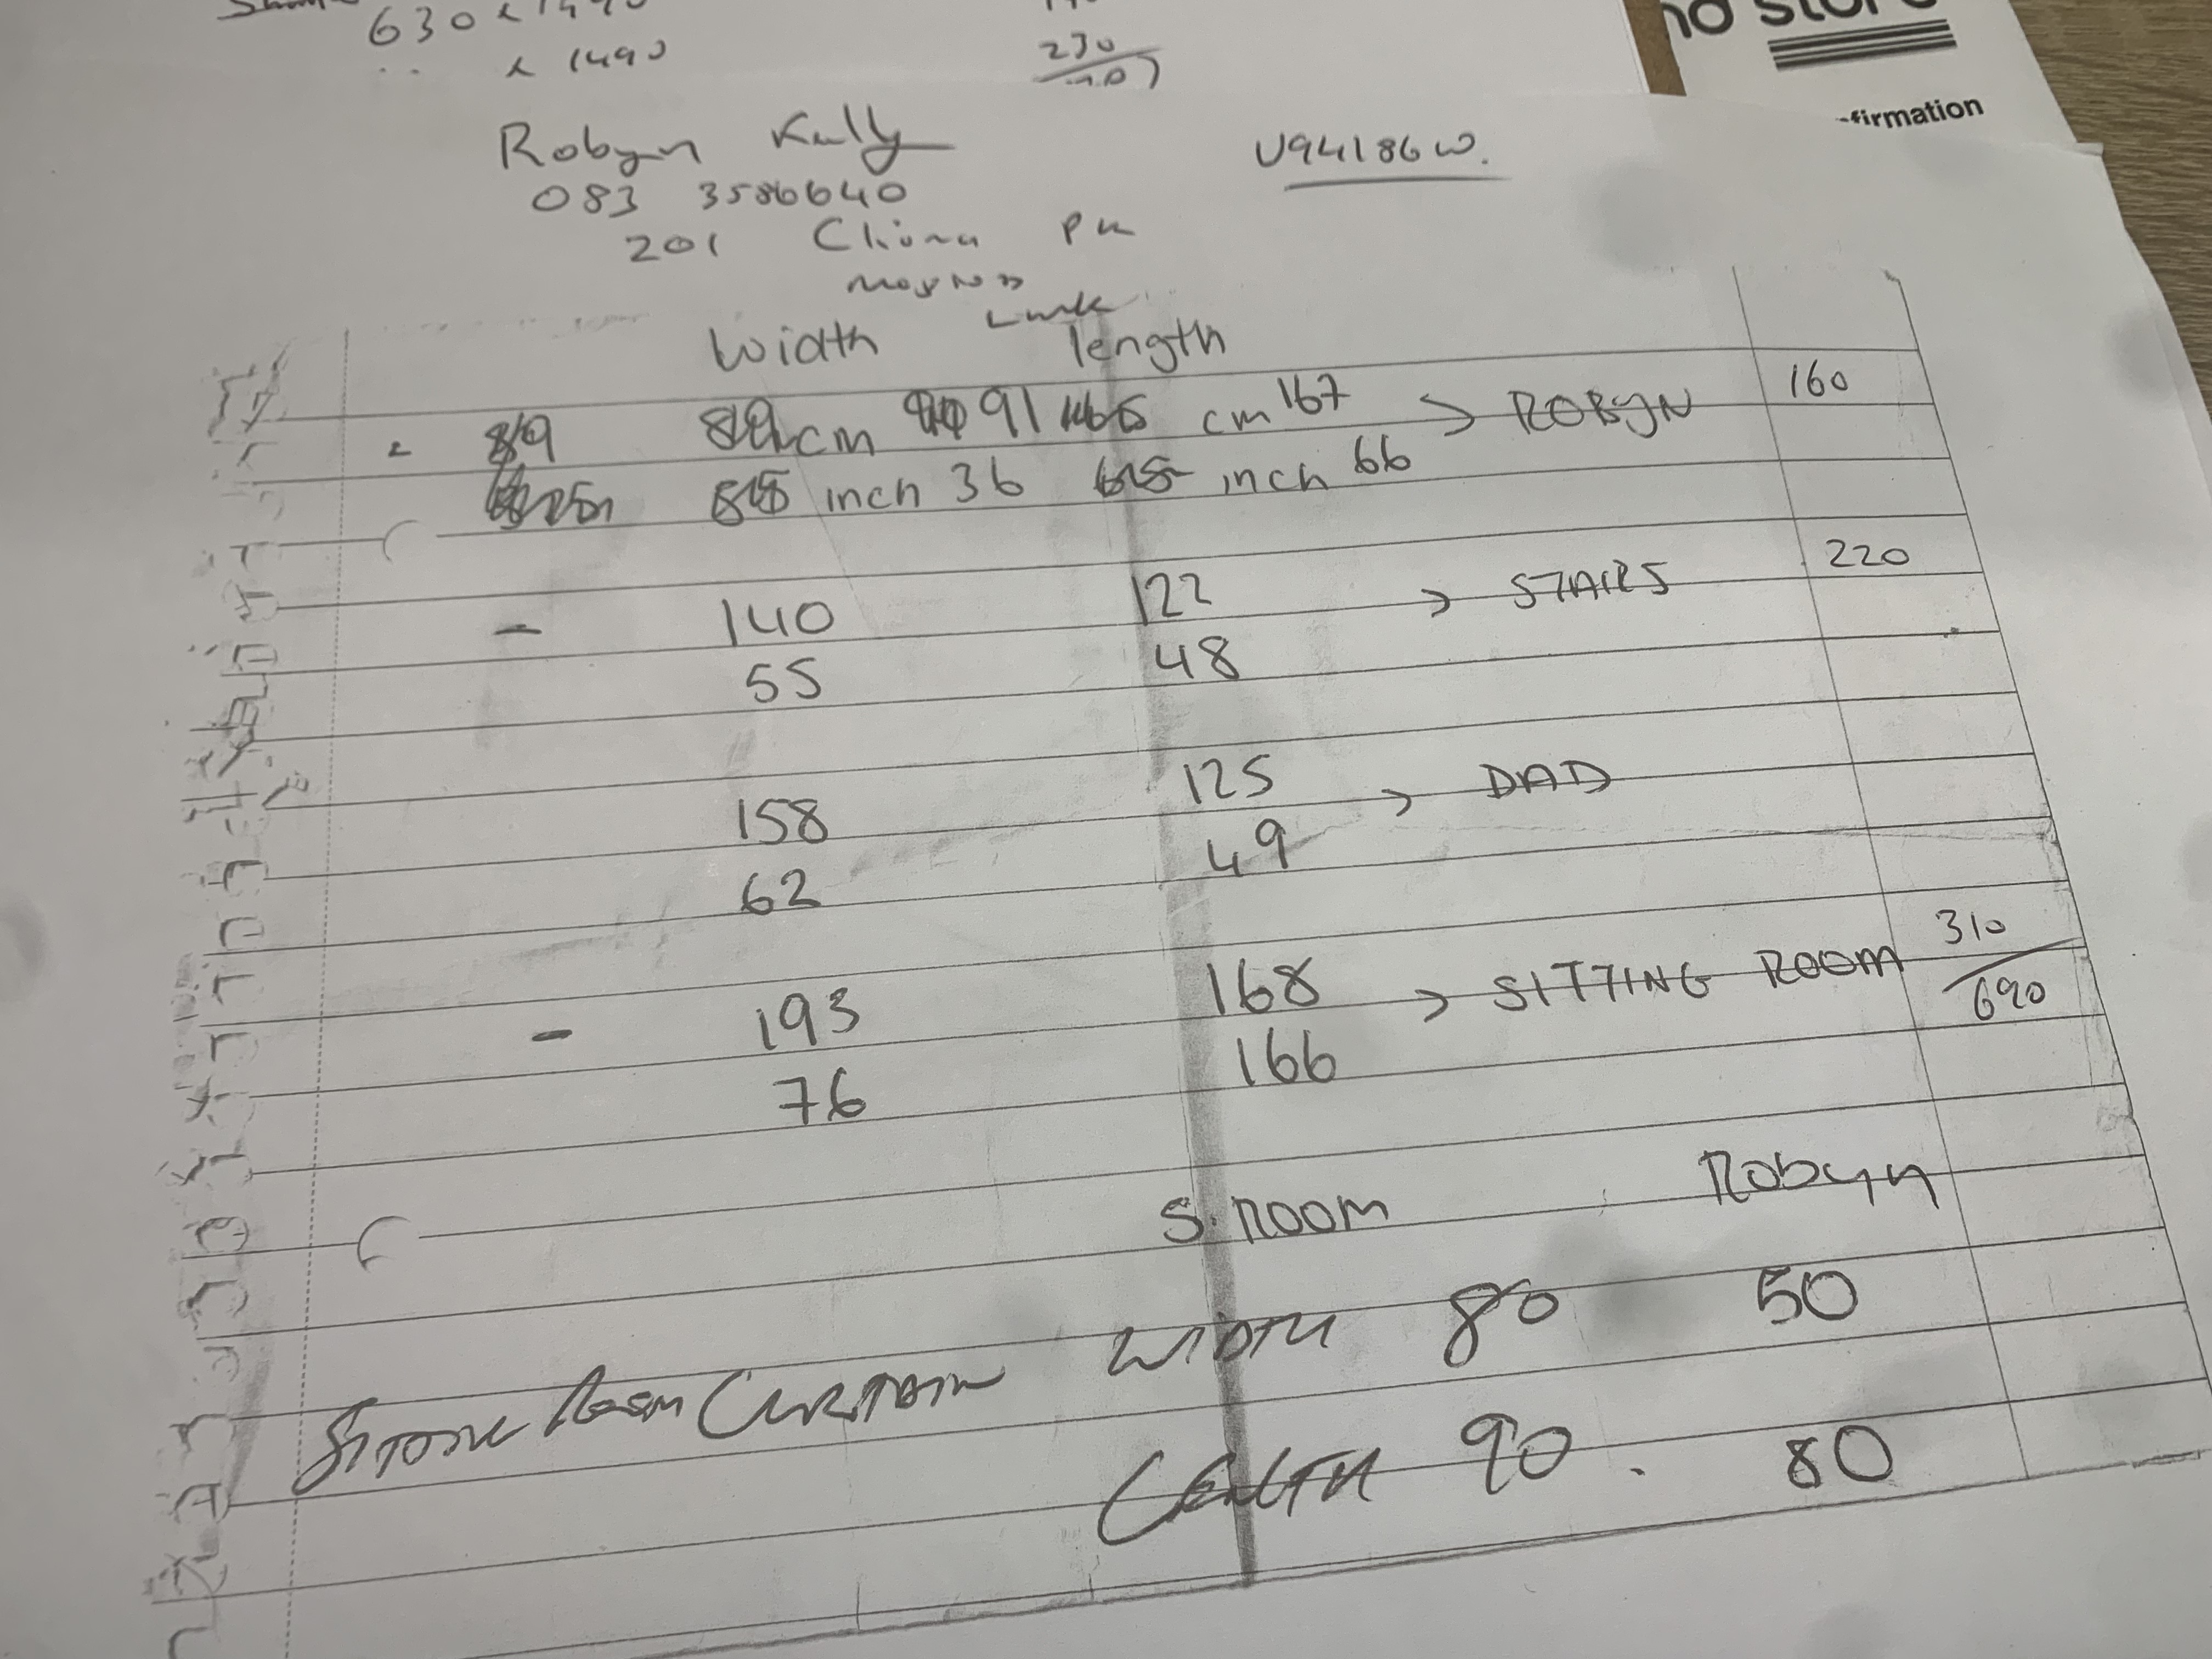 630 x 1490
x 1490
230
no store
firmation
Robyn Kelly
U94186W.
083 3586640
201 Cliona Pk
Moyross
Lmk
width length
89 cm 91 cm 167 → ROBYN 160
inch 36 inch 66
- 140 122 → STAIRS 220
55 48
158 125 → DAD
62 49
- 193 168 → SITTING ROOM 310
76 166 690
S. ROOM Robyn
SITTING ROOM CURTAIN WIDTH 80 50
LENGTH 90. 80